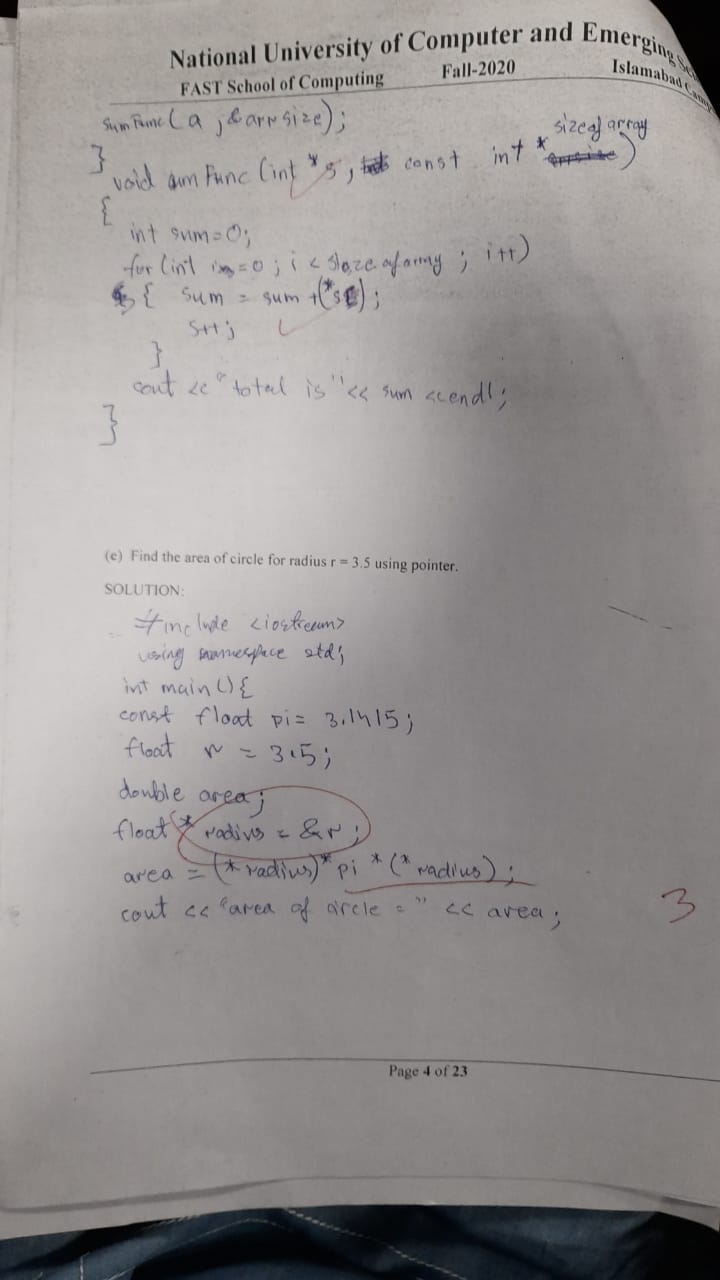 National University of Computer and Emerging Sc
FAST School of Computing Fall-2020 Islamabad Camp
SumFunc(a, &arrsize);
}
void sumFunc(int *s, const int *sizeofarray)
{
int sum=0;
for(int i=0; i < ; i++)
{ sum = sum +(*s);
s++;
}
cout << "total is"<< sum <<endl;
}
(e) Find the area of circle for radius r = 3.5 using pointer.
SOLUTION:
#include <iostream>
using namespace std;
int main(){
const float pi= 3.1415;
float r = 3.5;
double area;
float* radius = &r;
area = (*radius)* pi * (*radius);
cout << "area of circle =" << area;
3
Page 4 of 23